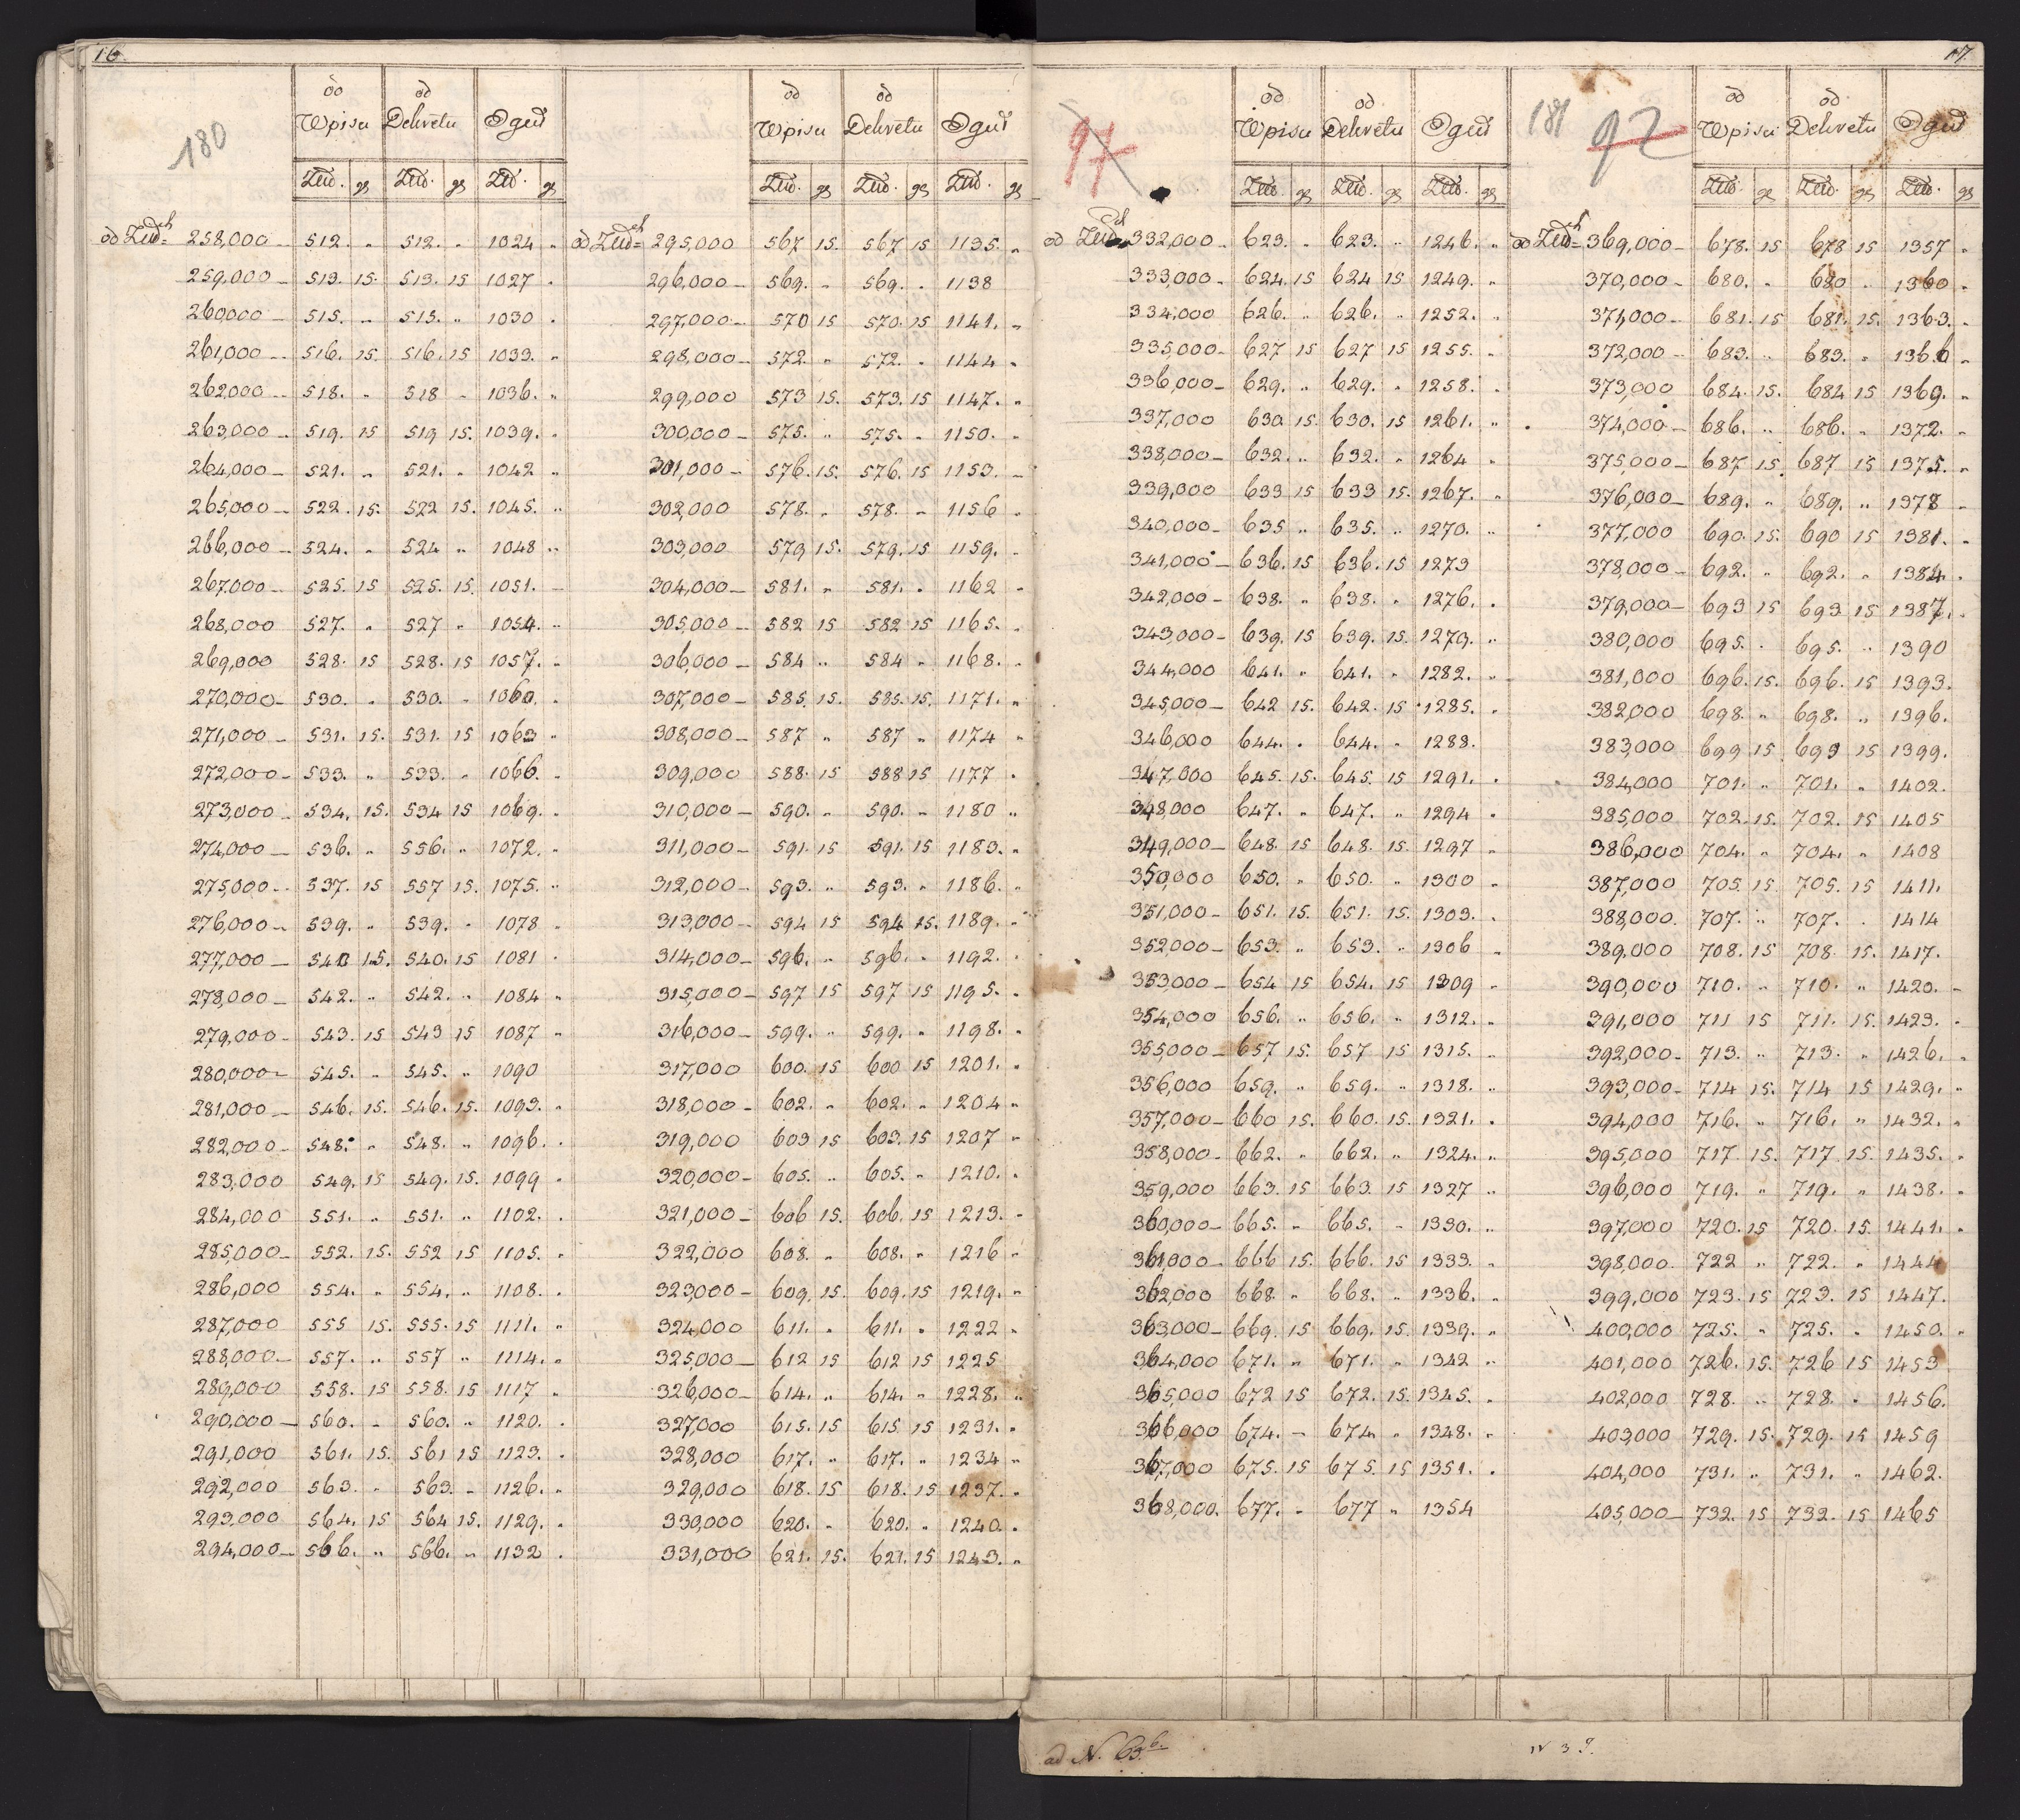 16.
180
od Wpisu od Dekretu Oguł
Złł. gr Złł. gr Złł. gr
od Złł=ch 258,000 512. „ 512. „ 1024 „
259,000 513. 15. 513. 15 1027 „
260,000 515. „ 515. „ 1030 „
261,000 516. 15. 516. 15 1033. „
262,000 518. „ 518 „ 1036. „
263,000 519. 15 519 15. 1039. „
264,000 521. „ 521. „ 1042 „
265,000 522. 15. 522 15. 1045. „
266,000 524. „ 524 „ 1048 „
267,000 525. 15 525. 15. 1051. „
268,000 527. „ 527 „ 1054. „
269,000 528. 15 528. 15 1057. „
270,000 530. „ 530. „ 1060. „
271,000 531. 15. 531. 15 1063 „
272,000 533. „ 533. „ 1066. „
273,000 534. 15. 534 15 1069. „
274,000 536. „ 556. „ 1072. „
275,000 537. 15 557 15. 1075. „
276,000 539. „ 539. „ 1078 „
277,000 540 15. 540. 15 1081 „
278,000 542. „ 542. „ 1084 „
279,000 543. 15 543 15 1087 „
280,000 545. „ 545. „ 1090
281,000 546. 15. 546. 15. 1093. „
282,000 548. „ 548. „ 1096. „
283,000 549. 15 549. 15. 1099 „
284,000 551. „ 551. „ 1102. „
285,000 552. 15. 552 15 1105. „
286,000 554. „ 554. „ 1108. „
287,000 555 15. 555. 15 1111. „
288,000 557. „ 557 „ 1114. „
289,000 558. 15 558. 15 1117 „
290,000 560. „ 560. „ 1120. „
291,000 561. 15. 561 15 1123. „
292,000 563. „ 563. „ 1126. „
293,000 564. 15 564 15. 1129. „
294,000 566. „ 566. „ 1132 „
od Wpisu od Dekretu Oguł
Złł. gr Złł. gr Złł. gr
od Złł=ch 295,000 567 15. 567 15 1135. „
296,000 569. „ 569. „ 1138
297,000 570 15 570. 15 1141. „
298,000 572. „ 572. „ 1144 „
299,000 573 15. 573. 15 1147. „
300,000 575. „ 575. „ 1150. „
301,000 576. 15. 576. 15 1153. „
302,000 578. „ 578. „ 1156 „
303,000 579 15. 579. 15 1159. „
304,000 581. „ 581. „ 1162 „
305,000 582 15 582 15 1165. „
306,000 584 „ 584 „ 1168. „
307,000 585. 15. 585. 15. 1171. „
308,000 587 „ 587 „ 1174 „
309,000 588. 15 588 15 1177 „
310,000 590. „ 590. „ 1180 „
311,000 591. 15 591. 15 1183. „
312,000 593. „ 593. „ 1186. „
313,000 594 15 594 15. 1189. „
314,000 596. „ 596. „ 1192. „
315,000 597 15 597 15 1195. „
316,000 599. „ 599. „ 1198. „
317,000 600. 15 600 15 1201. „
318,000 602. „ 602. „ 1204 „
319,000 603 15 603. 15 1207 „
320,000 605. „ 605. „ 1210. „
321,000 606 15. 606. 15 1213. „
322,000 608. „ 608. „ 1216 „
323,000 609. 15. 609. 15 1219. „
324,000 611. „ 611. „ 1222 „
325,000 612 15 612 15 1225
326,000 614. „ 614. „ 1228. „
327,000 615. 15 615 15 1231. „
328,000 617. „ 617. „ 1234 „
329,000 618. 15 618. 15 1237. „
330,000 620. „ 620. „ 1240. „
331,000 621. 15. 621. 15 1243. „
17.
97
od Wpisu od Dekretu Oguł
Złł. gr Złł. gr Złł. gr
od Złł=ch 332,000 623. „ 623. „ 1246. „
333,000 624. 15 624 15 1249. „
334,000 626. „ 626. „ 1252. „
335,000 627 15 627 15 1255. „
336,000 629. „ 629. „ 1258. „
337,000 630 15. 630. 15 1261. „
338,000 632. „ 632. „ 1264 „
339,000 633 15 633 15. 1267. „
340,000 635 „ 635. „ 1270. „
341,000 636. 15 636. 15 1273
342,000 638. „ 638. „ 1276. „
343,000 639. 15 639. 15. 1279. „
344,000 641. „ 641. „ 1282. „
345,000 642 15. 642. 15 1285. „
346,000 644. „ 644. „ 1288.
347,000 645. 15. 645. 15 1291. „
348,000 647. „ 647. „ 1294 „
349,000 648. 15 648. 15. 1297 „
350,000 650. „ 650. „ 1300 „
351,000 651. 15. 651. 15. 1303. „
352,000 653. „ 653. „ 1306 „
353,000 654 15 654. 15 1309 „
354,000 656. „ 656. „ 1312. „
355,000 657 15. 657 15 1315. „
356,000 659. „ 659. „ 1318. „
357,000 660 15. 660. 15. 1321. „
358,000 662. „ 662. „ 1324. „
359,000 663. 15 663. 15 1327 „
360,000 665. „ 665. „ 1330. „
361,000 666 15. 666. 15 1333. „
362,000 668. „ 668. „ 1336. „
363,000 669. 15 669. 15. 1339. „
364,000 671. „ 671. „ 1342 „
365,000 672 15 672. 15. 1345. „
366,000 674. „ 674. „ 1348. „
367,000 675. 15 675. 15 1351. „
368,000. 677. „ 677 „ 1354
181 92
od Wpisu od Dekretu Oguł
Złł. gr Złł. gr Złł. gr
od Złł=ch 369,000 678. 15 678 15 1357 „
370,000 680. „ 680 „ 1360 „
371,000 681. 15 681. 15. 1363. „
372,000 683. „ 683. „ 1366 „
373,000 684. 15. 684 15 1369. „
374,000 686. „ 686. „ 1372. „
375,000 687 15. 687 15 1375. „
376,000 689. „ 689. „ 1378 „
377,000 690. 15. 690 15 1381. „
378,000 692. „ 692. „ 1384. „
379,000 693 15 693 15 1387. „
380,000 695. „ 695. „ 1390
381,000 696. 15. 696. 15 1393.
382,000 698. „ 698. „ 1396.
383,000 699 15 699 15 1399.
384,000 701. „ 701. „ 1402.
385,000 702. 15. 702. 15 1405
386,000 704. „ 704. „ 1408
387,000 705. 15. 705. 15 1411.
388,000. 707. „ 707. „ 1414
389,000 708. 15 708. 15. 1417.
390,000 710. „ 710. „ 1420. „
391,000 711 15 711. 15. 1423. „
392,000 713. „ 713. „ 1426. „
393,000 714 15. 714 15 1429. „
394,000 716. „ 716. „ 1432. „
395,000 717. 15. 717. 15. 1435. „
396,000 719. „ 719. „ 1438. „
397,000 720. 15 720. 15. 1441. „
398,000. 722 „ 722. „ 1444
399,000 723. 15 723. 15 1447.
400,000 725. „ 725. „ 1450. „
401,000 726. 15. 726 15 1453
402,000 728. „ 728. „ 1456.
403,000 729. 15. 729. 15 1459
404,000 731. „ 731. „ 1462.
405,000 732. 15 732. 15 1465
ad N.